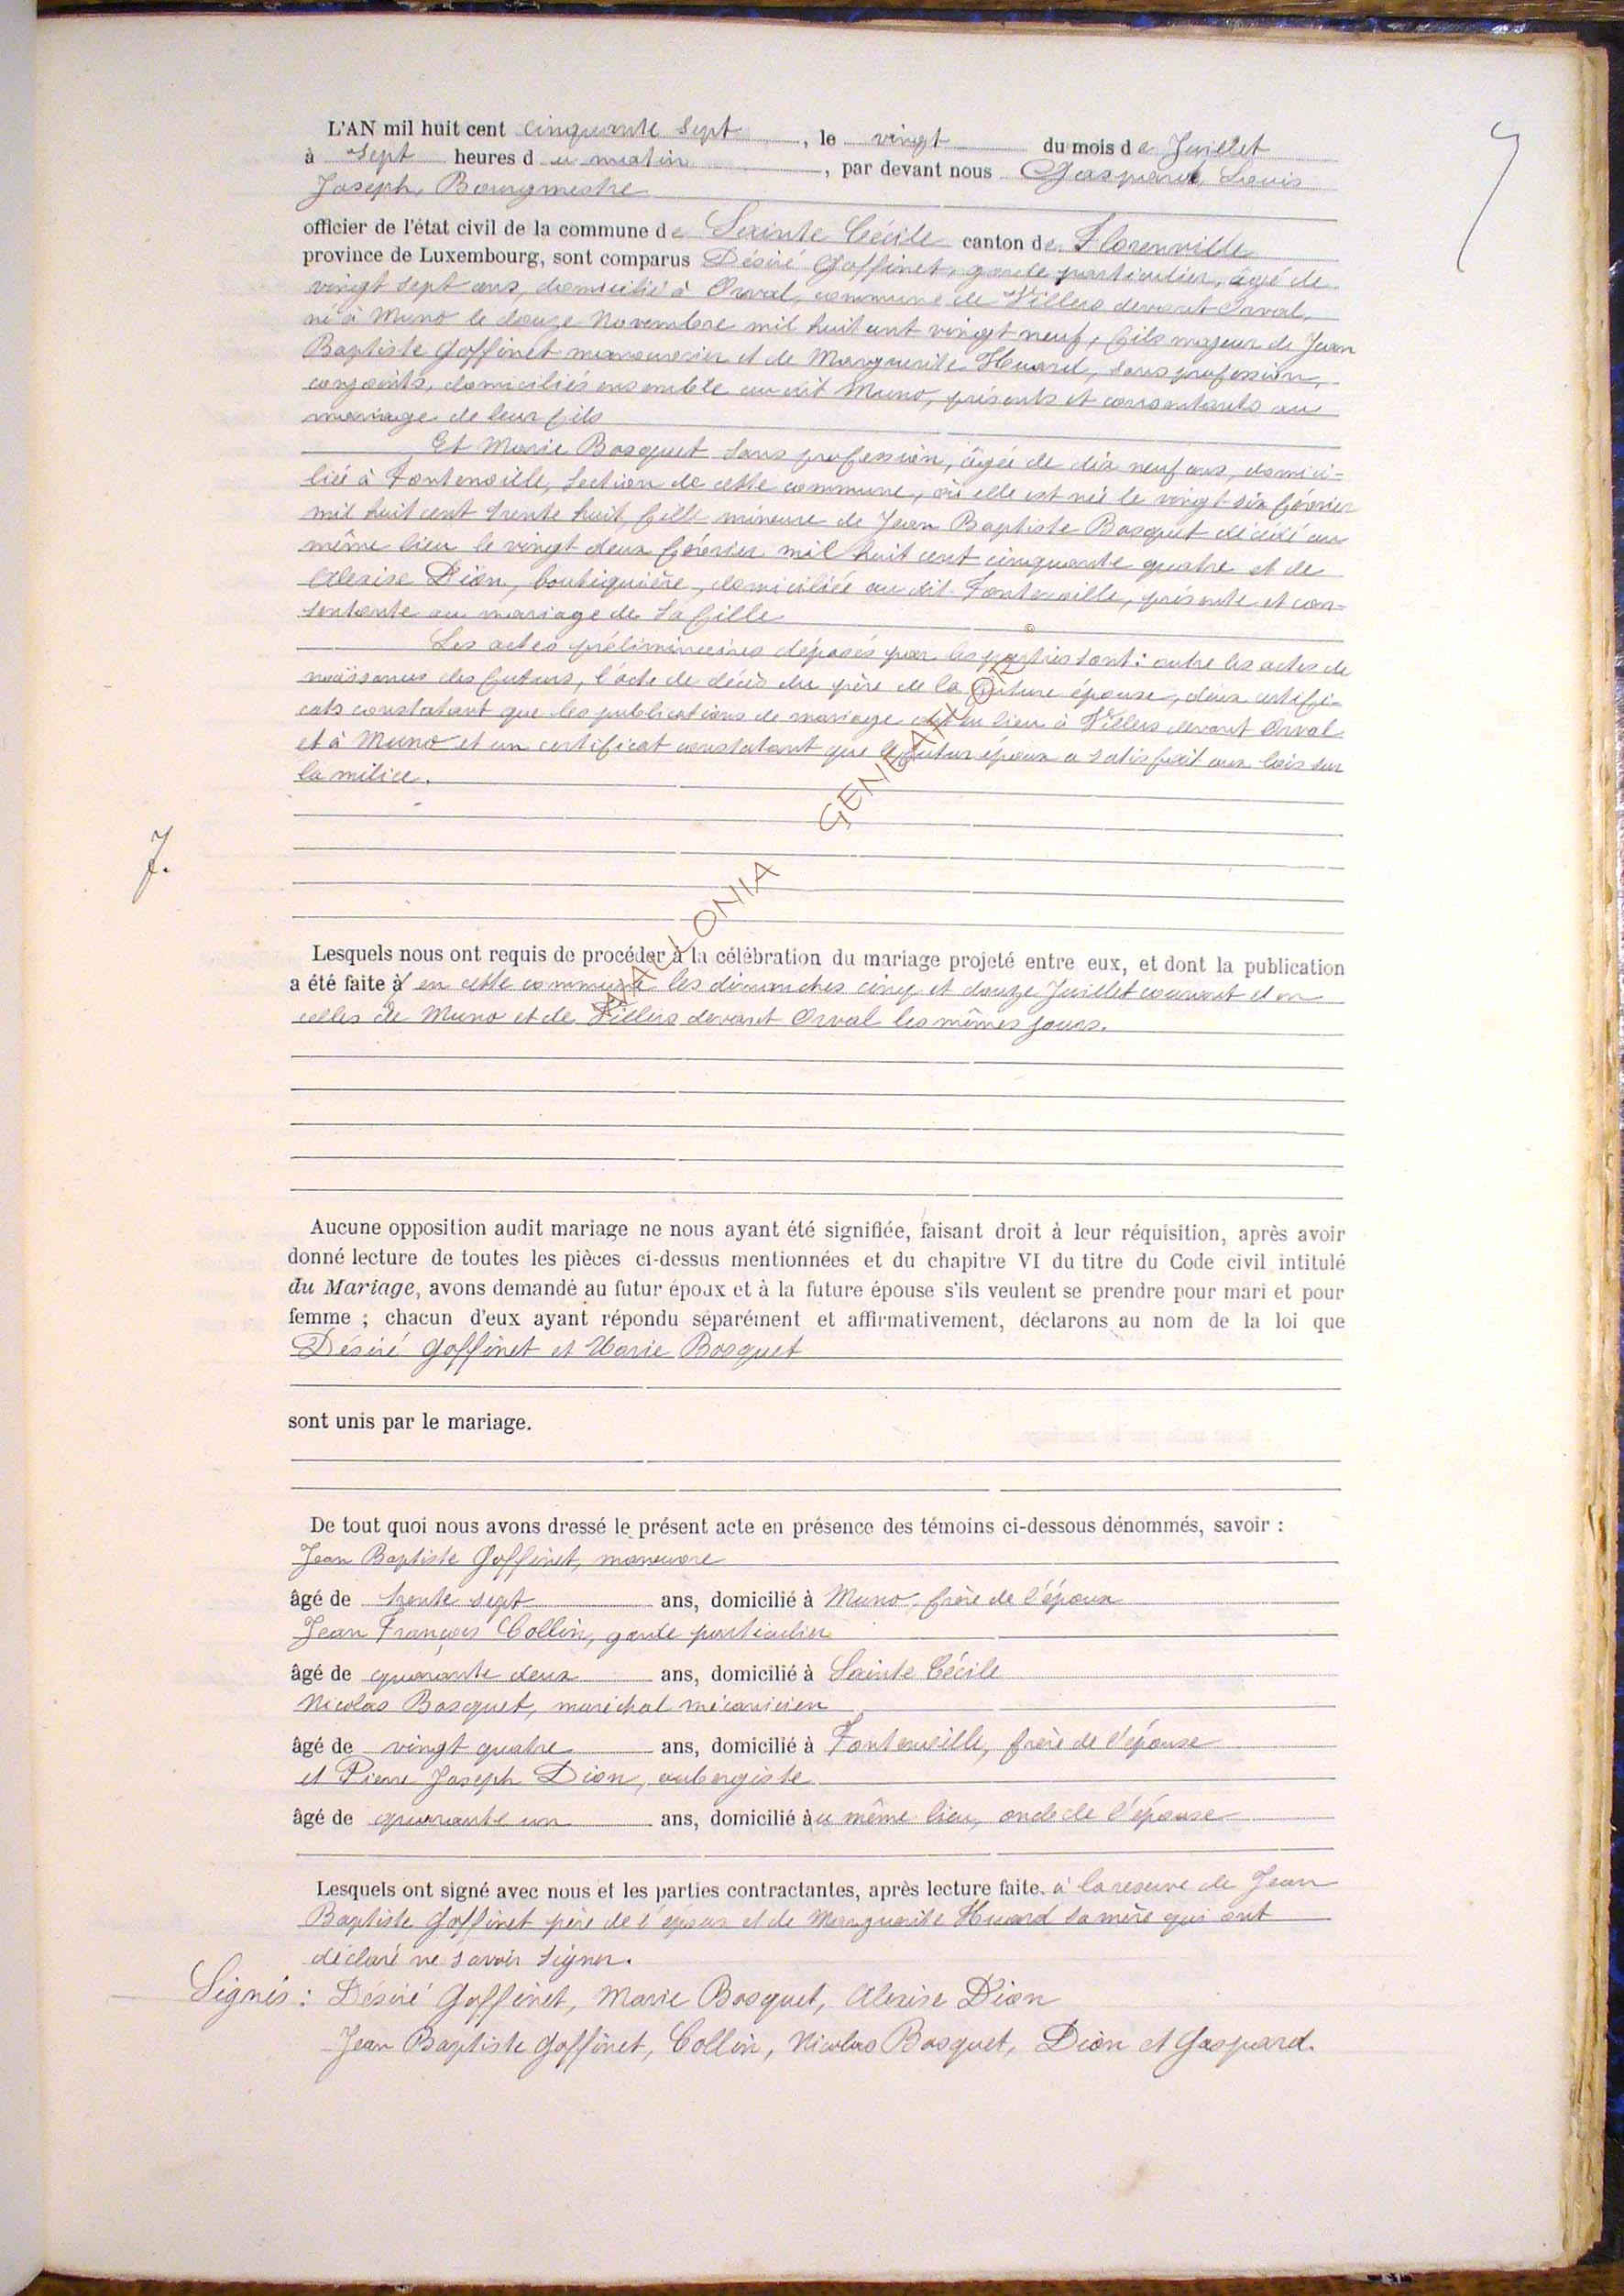 7
L'AN mil huit cent cinquante sept, le vingt du mois de Juillet
à sept heures du matin, par devant nous Gaspard Louis
Joseph, Bourgmestre
officier de l'état civil de la commune de Sainte Cécile canton de Florenville
province de Luxembourg, sont comparus Désiré Goffinet, garde particulier, âgé de
vingt sept ans, domicilié à Orval, commune de Villers devant Orval,
né à Muno le douze Novembre mil huit cent vingt neuf, fils majeur de Jean
Baptiste Goffinet manouvrier et de Marguerite Huard, sans profession,
conjoints, domiciliés ensemble au dit Muno, présents et consentants au
mariage de leur fils
Et Marie Bosquet sans profession, âgée de dix neuf ans, domici-
liée à Fontenoille, section de cette commune, où elle est née le vingt six février
mil huit cent trente huit, fille mineure de Jean Baptiste Bosquet décédé au
même lieu le vingt deux février mil huit cent cinquante quatre et de
Alexise Dion, boutiquière, domiciliée au dit Fontenoille, présente et con-
sentante au mariage de sa fille
Les actes préliminaires déposés par les parties sont: outre les actes de
naissances des futurs, l'acte de décès du père de la future épouse, deux certifi-
cats constatant que les publications de mariage ont eu lieu à Villers devant Orval
et à Muno et un certificat constatant que le futur époux a satisfait aux lois sur
la milice.
7.
WALLONIA GENEALOGIE ©
Lesquels nous ont requis de procéder à la célébration du mariage projeté entre eux, et dont la publication
a été faite à en cette commune les dimanches cinq et douze Juillet courant et en
celles de Muno et de Villers devant Orval les mêmes jours.
Aucune opposition audit mariage ne nous ayant été signifiée, faisant droit à leur réquisition, après avoir
donné lecture de toutes les pièces ci-dessus mentionnées et du chapitre VI du titre du Code civil intitulé
du Mariage, avons demandé au futur époux et à la future épouse s'ils veulent se prendre pour mari et pour
femme ; chacun d'eux ayant répondu séparément et affirmativement, déclarons au nom de la loi que
Désiré Goffinet et Marie Bosquet
sont unis par le mariage.
De tout quoi nous avons dressé le présent acte en présence des témoins ci-dessous dénommés, savoir :
Jean Baptiste Goffinet, manœuvre
âgé de trente sept ans, domicilié à Muno, frère de l'époux
Jean François Collin, garde particulier
âgé de quarante deux ans, domicilié à Sainte Cécile
Nicolas Bosquet, maréchal mécanicien
âgé de vingt quatre ans, domicilié à Fontenoille, frère de l'épouse
et Pierre Joseph Dion, aubergiste
âgé de quarante un ans, domicilié àu même lieu, oncle de l'épouse
Lesquels ont signé avec nous et les parties contractantes, après lecture faite. à la reserve de Jean
Baptiste Goffinet père de l'époux et de Marguerite Huard sa mère qui ont
déclaré ne savoir signer.
Signés : Désiré Goffinet, Marie Bosquet, Alexise Dion
Jean Baptiste Goffinet, Collin, Nicolas Bosquet, Dion et Gaspard.